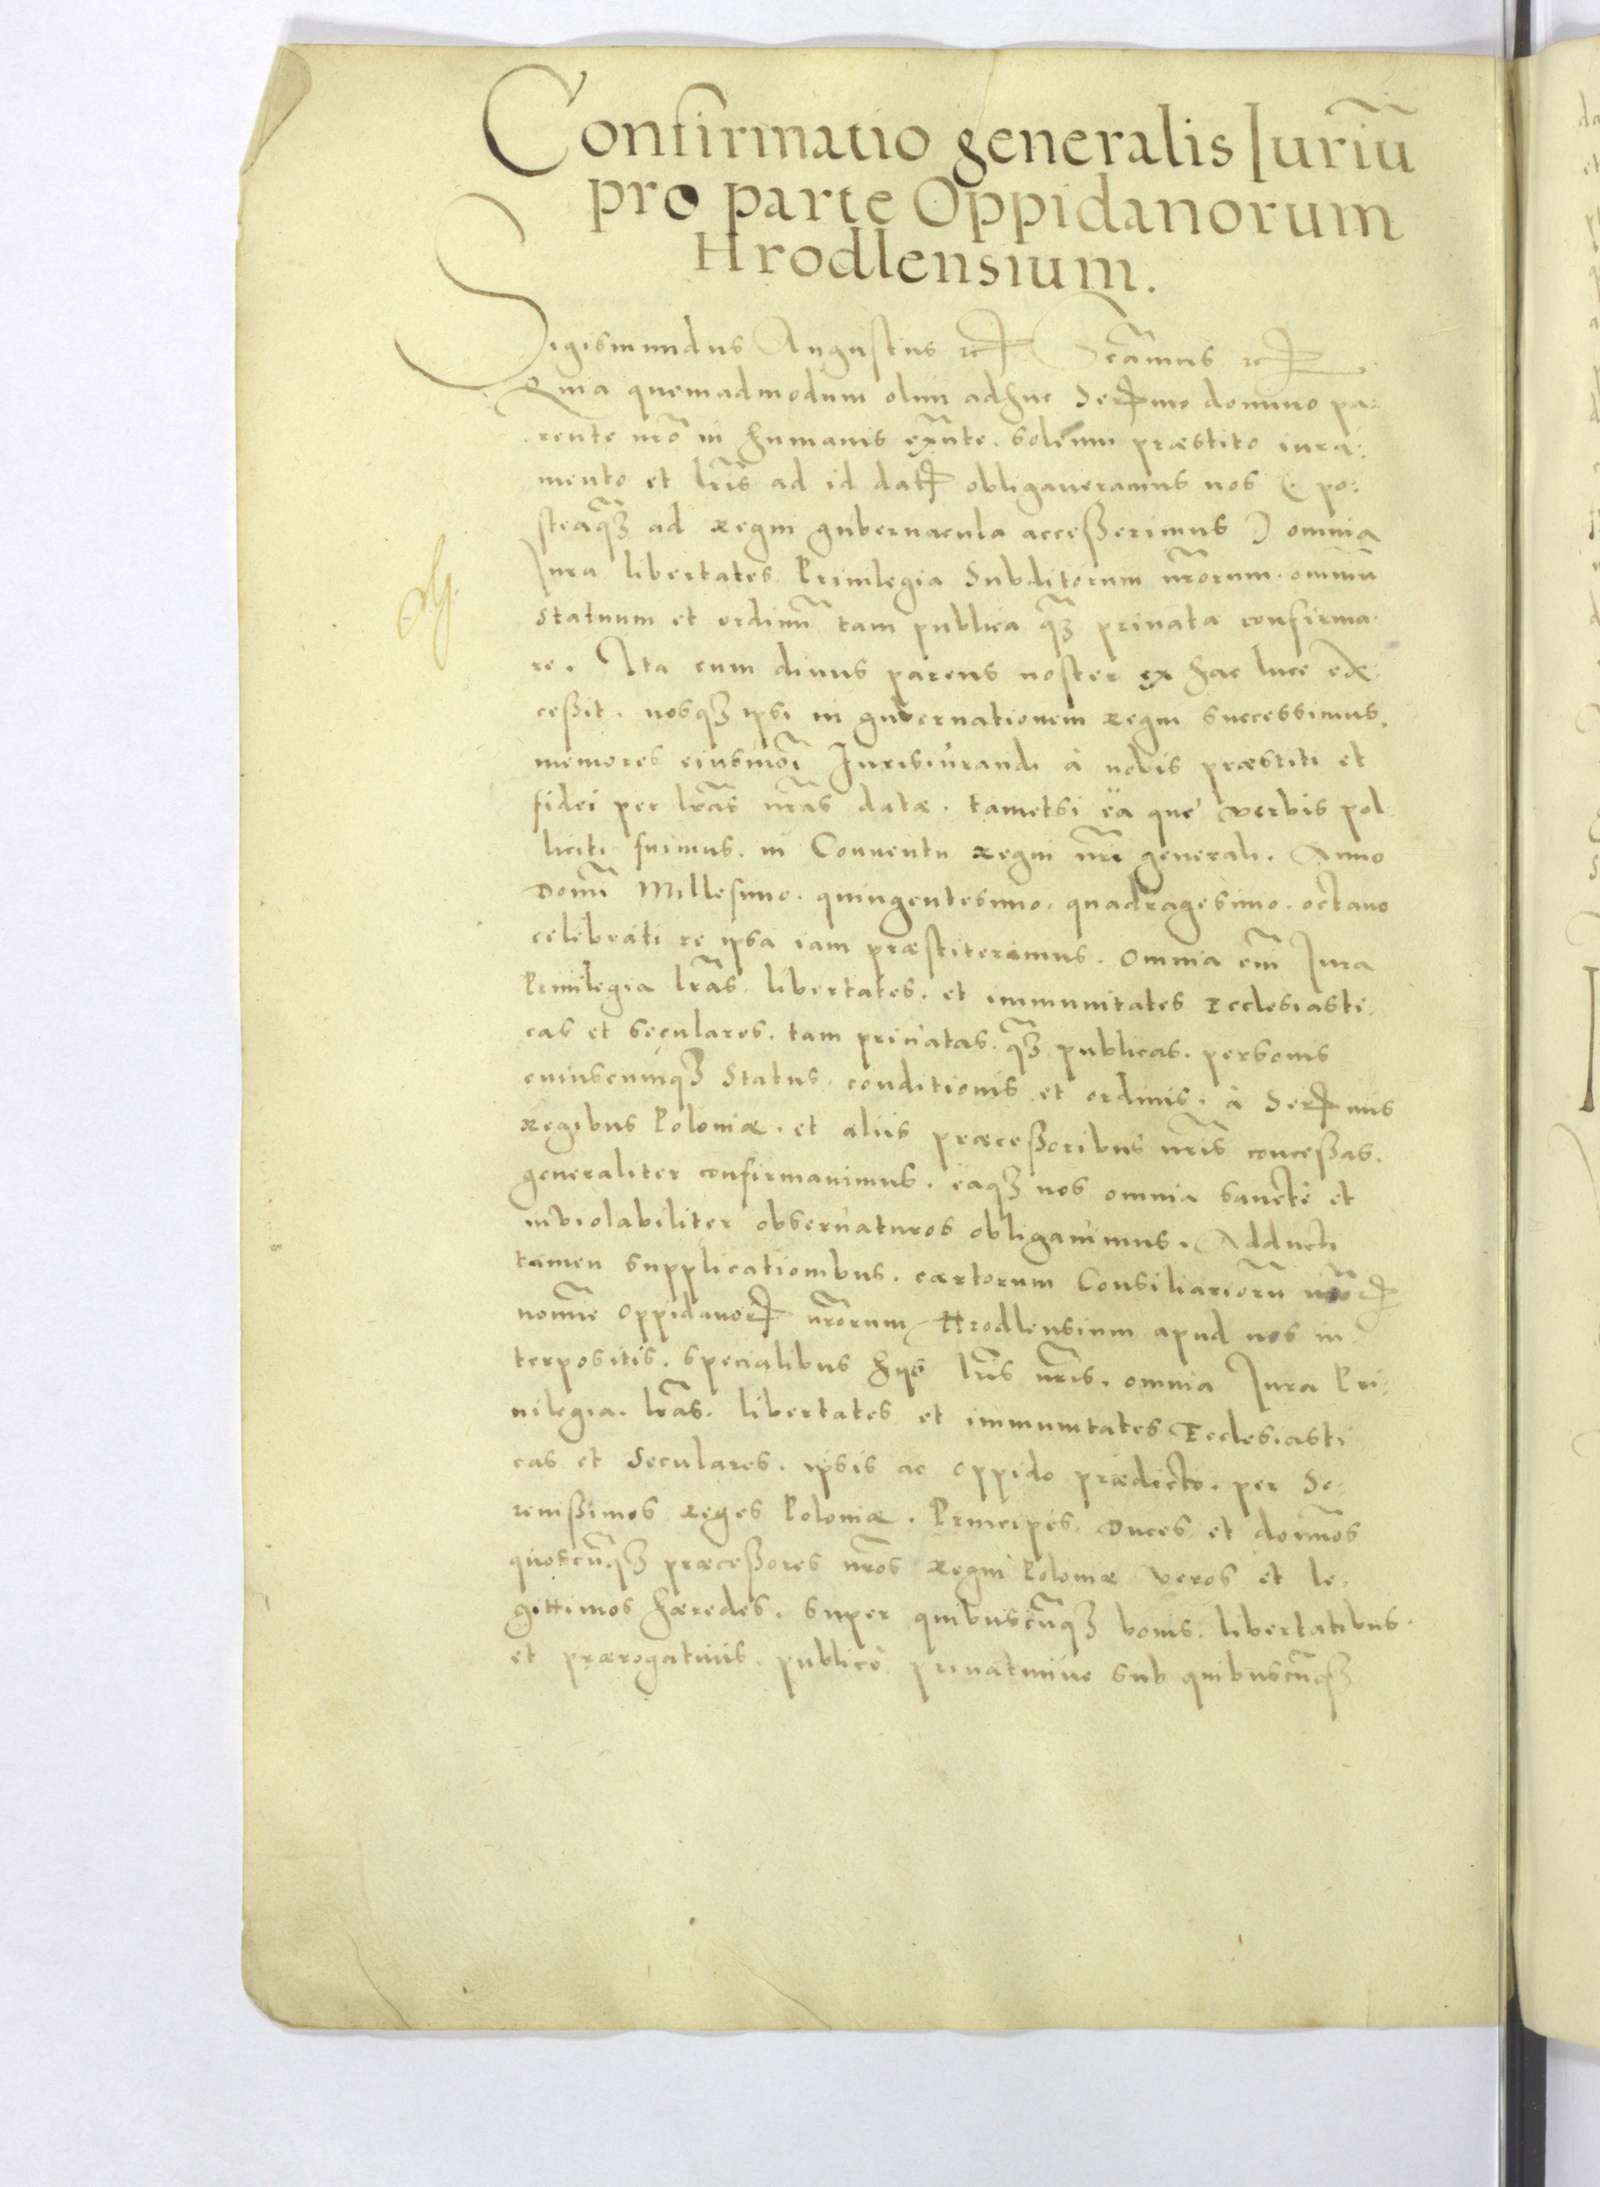 Confirmatio generalis Iuriū
pro parte Oppidanorum
Hrodlensium.
Sigismundus Augustus etc. etc.
Quia quemadmodum olim adhuc Sermo domino pa:
rente nrō in humanis exn̄te. solenni præstito iura:
mento et lrīs ad id dat obligaueramus nos (. po:
steaq̄ȝ ad Regni gubernacula acceßerimus .) omnia
Iura libertates Priuilegia Subditorum nr̄orum. omniū
Statuum et ordinū tam publica q̄ȝ priuata confirma.
re. Ita cum diuus parens noster ex hac luce ex.
ceßit. nosqȝ ipsi in gubernationem Regni successimus.
memores eiusmōi Iurisiurandi à nobis præstiti et
fidei per lrās nrās datæ. tametsi ea que verbis pol
liciti fuimus. in Conuentu Regni nrī generali. Anno
Domī Millesimo. quingentesimo. quadragesimo. octauo
celebrati re ipsa iam præstiterimus. Omnia em̄ Iura
Priuilegia lrās. libertates. et immunitates Ecclesiasti.
cas et seculares. tam priuatas. q̄ȝ publicas. personis
cuiuscunqȝ Status. conditionis et ordinis. à Sermis
Regibus Poloniæ. et aliis præceßoribus nrīs conceßas.
generaliter confirmauimus. eaqȝ nos omnia sanctè et
inuiolabiliter obseruaturos obligauimus. Adducti
tamen supplicationibus. cærtorum Consiliariorū nrōr
nomīe Oppidanor nr̄orum Hrodlensium apud nos in
terpositis. specialibus hijs lrīs nrīs. omnia Iura Pri:
uilegia. lrās. libertates et immunitates Ecclesiasti
cas et Seculares. ipsis ac Oppido prædicto. per Se:
renißimos Reges Poloniæ. Principes. Duces et domīos
quoscūqȝ præceßores nrōs Regni Poloniæ veros et le.
gittimos hæredes. super quibuscūqȝ bonis. libertatibus.
et prærogatiuis. publicè priuatimue sub quibuscūqȝ